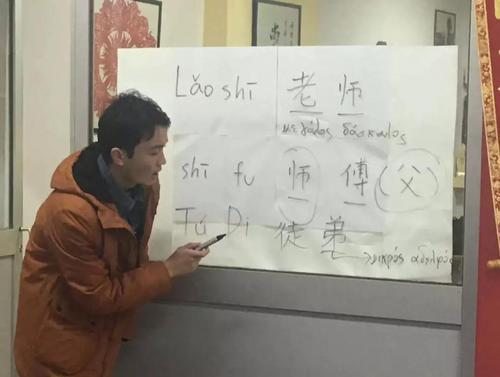 Lǎo shī 老师
μεγάλος δάσκαλος
shī fu 师傅 (父)
Tú Dì 徒弟
→ μικρός αδελφός